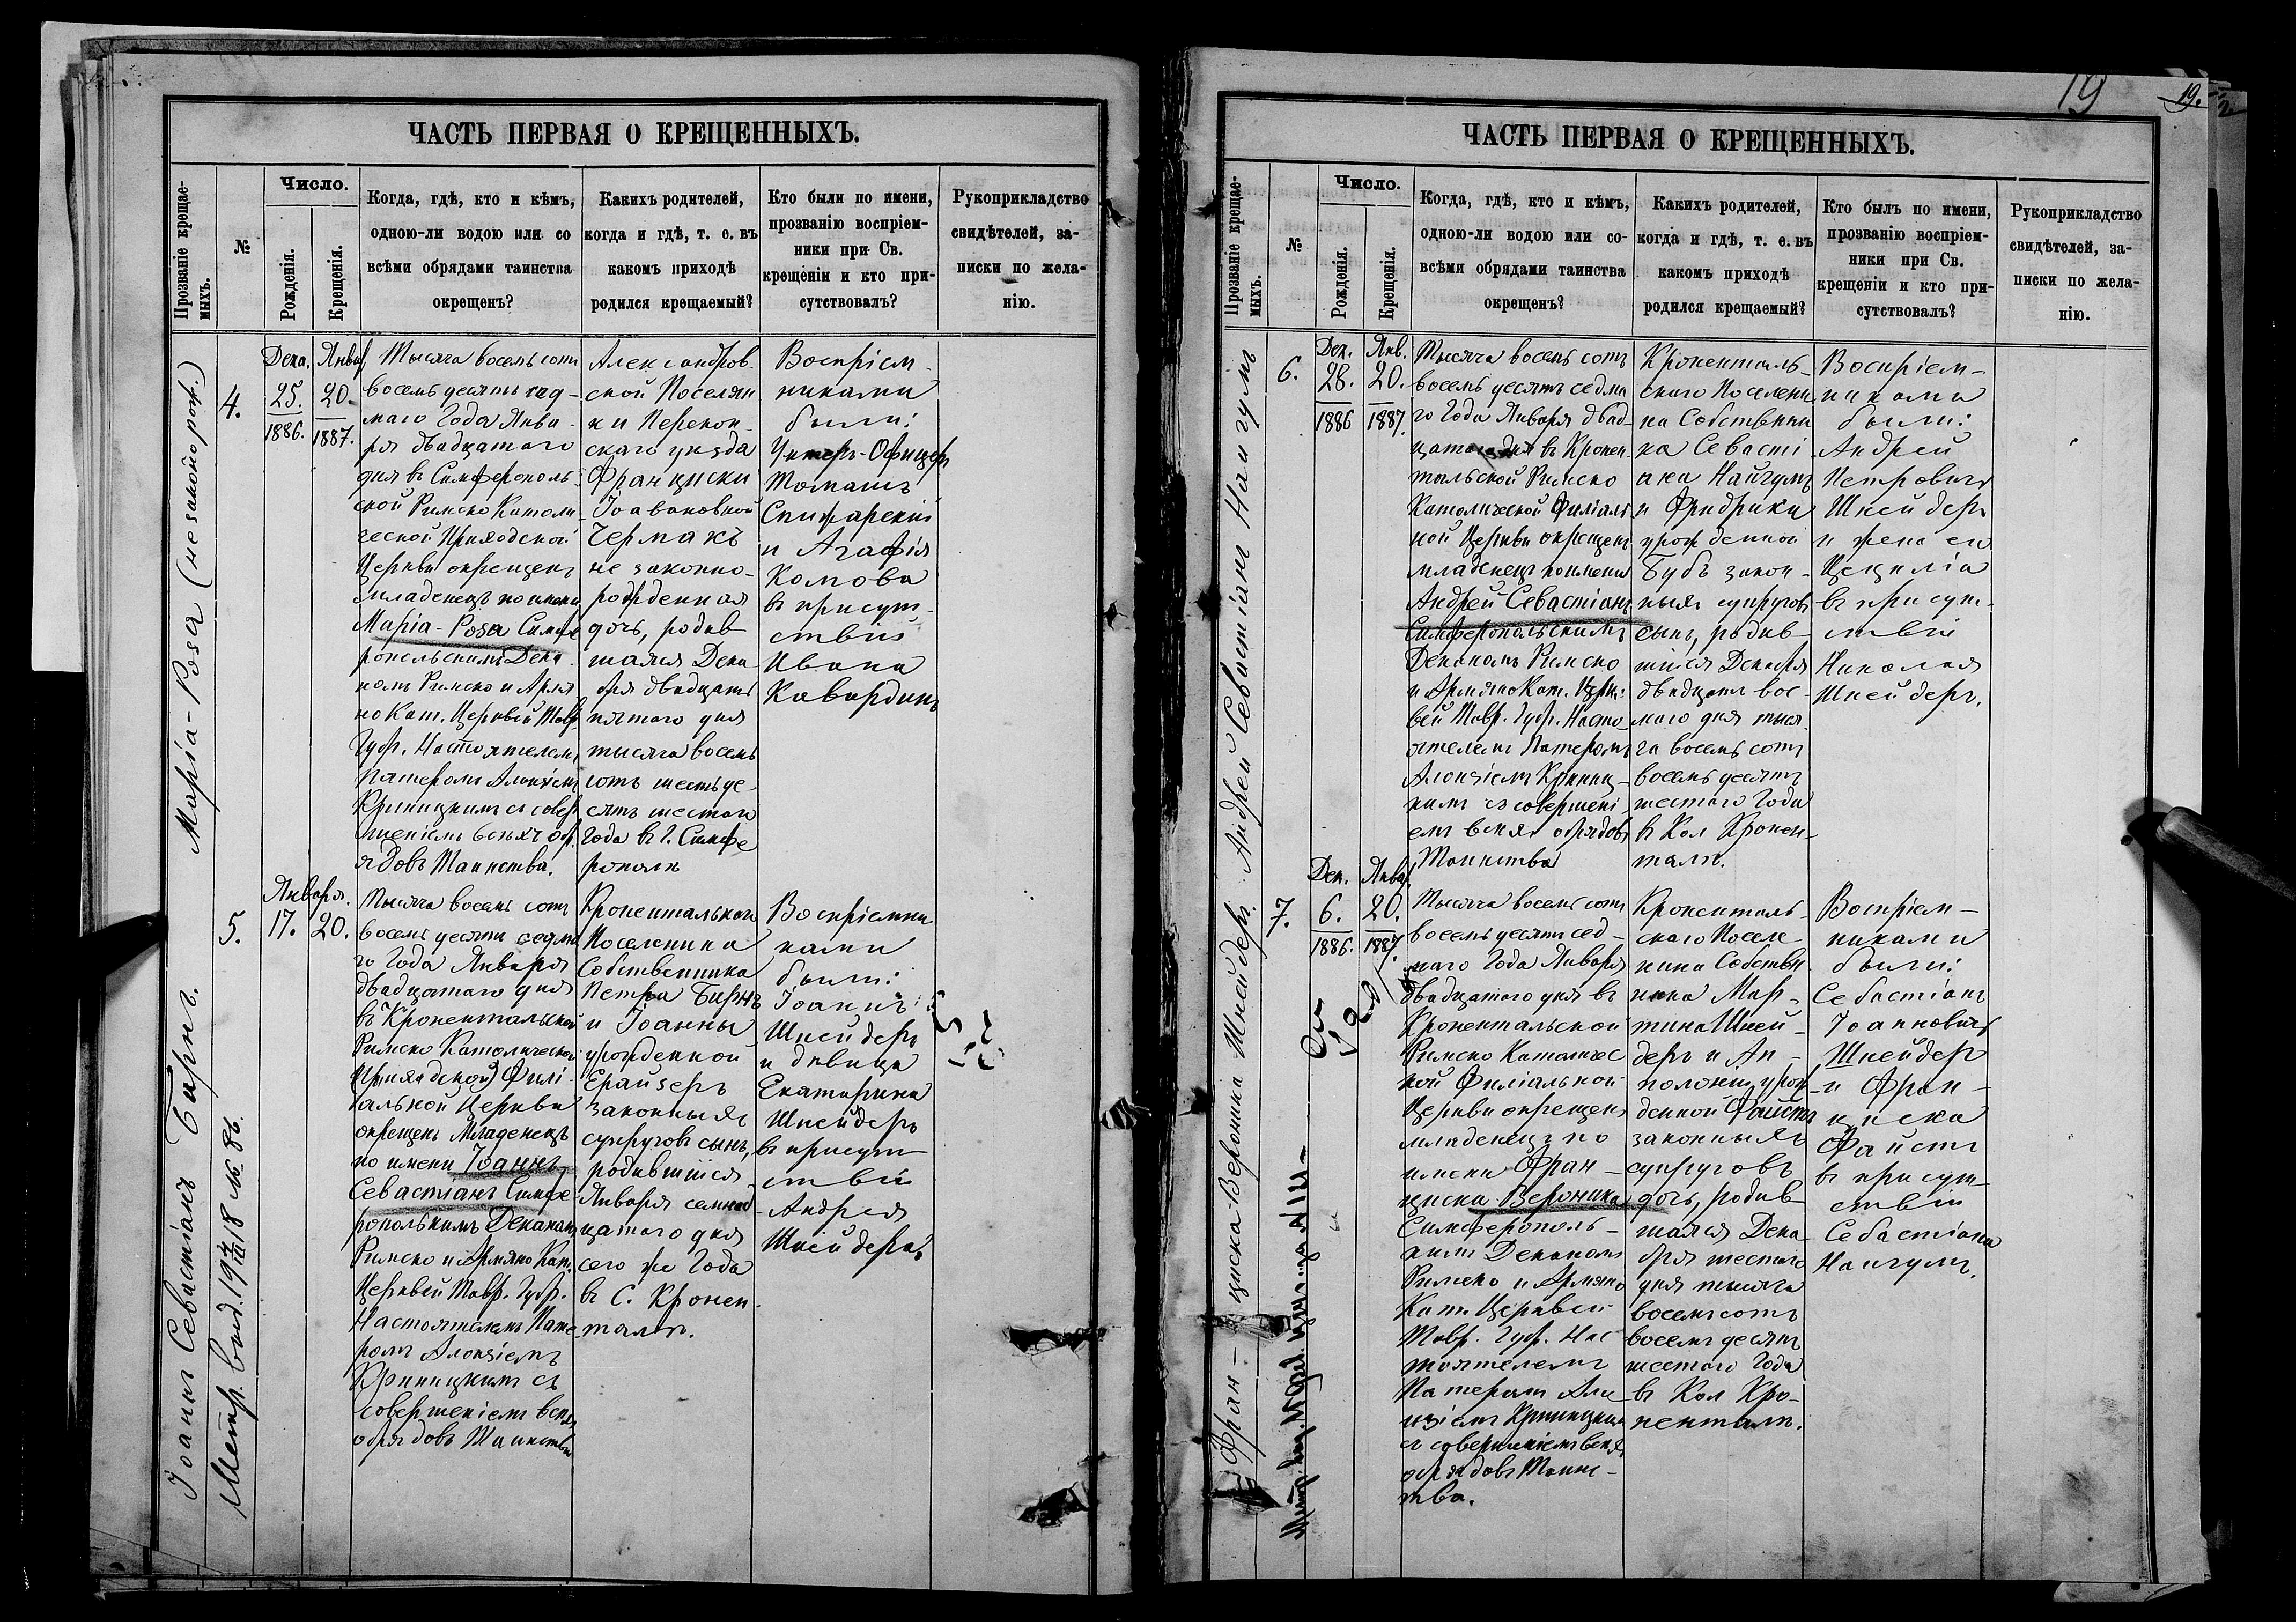 ЧАСТЬ ПЕРВАЯ О КРЕЩЕННЫХЪ.
Прозваніе крещае-
мыхъ.
№
Число.
Рожденія.
Крещенія.
Когда, гдѣ, кто и кѣмъ,
одною-ли водою или со
всѣми обрядами таинства
окрещенъ?
Какихъ родителей,
когда и гдѣ, т. е. въ
какомъ приходѣ
родился крещаемый?
Кто были по имени,
прозванію воспріем-
ники при Св.
крещеніи и кто при-
сутствовалъ?
Рукоприкладство
свидѣтелей, за-
писки по жела-
нію.
Марія-Роза (незаконорож.)
4.
Дека.
25.
1886.
Январ.
20.
1887.
Тысяча восемь сотъ
восемь десятъ сед-
маго Года Янва-
ря двадцатаго
дня въ Симферополь-
ской Римско Католи
ческой Приходской
Церкви окрещенъ
младенецъ по имени
Марія-Роза Симфе
ропольскимъ Дека
номъ Римско и Армя
но Кат. Церквей Тавр.
Губ. Настоятелемъ
Патеромъ Алоизіемъ
Криницкимъ съ совер
шеніемъ всѣхъ об
рядовъ Таинства.
Александров
ской Поселян
ки Перекоп-
скаго уѣзда
Франциски
Іоавановной
Чермакъ
не законно-
рожденная
дочь, родив
шаяся Дека
бря двадцать
пятаго дня
тысяча восемь
сотъ шестьде
сятъ шестаго
Года въ Г. Симфе
рополѣ
Воспріем-
никами
были:
Унтеръ-Офицеръ
Томашъ
и Агафія
Комова
въ присут-
ствіи
Ивана
Кавардинъ
Іоаннъ Севастіанъ Бирнъ.
5.
Января.
17.
20.
Тысяча восемь сотъ
восемь десятъ седма
го Года Января
двадцатаго дня
въ Кронентальской
Римско Католической
Приходской Филі-
альной Церкви
окрещенъ Младенецъ
по имени Іоаннъ
Севастіанъ Симфе
ропольскимъ Деканомъ
Римско и Армяно Кат.
Церквей Тавр. Губ.
Настоятелемъ Пате
ромъ Алоизіемъ
Криницкимъ съ
совершеніемъ всѣхъ
обрядовъ Таинства
Кронентальскаго
Поселенина
Собственника
Петра Бирнъ
и Іоанны
урожденной
Ерайзеръ
законныхъ
супруговъ сынъ,
родившійся
Января семнад
цатаго дня
сего же Года
въ С. Кронен-
талѣ.
Воспріемни
ками
были:
Іоаннъ
Шнейдеръ
и дѣвица
Екатерина
Шнейдеръ
въ присут
ствіи
Андрея
Шнейдеръ.
ЧАСТЬ ПЕРВАЯ О КРЕЩЕННЫХЪ.
19
19.
Прозваніе крещае-
мыхъ.
№
Число.
Рожденія.
Крещенія.
Когда, гдѣ, кто и кѣмъ,
одною-ли водою или со-
всѣми обрядами таинства
окрещенъ?
Какихъ родителей,
когда и гдѣ, т. е. въ
какомъ приходѣ
родился крещаемый?
Кто былъ по имени,
прозванію воспріем-
ники при Св.
крещеніи и кто при-
сутствовалъ?
Рукоприкладство
свидѣтелей, за-
писки по жела-
нію.
Андрей Севастіанъ Наигумъ
6.
Дек.
28.
1886
Янв.
20.
1887.
Тысяча восемь сотъ
восемь десятъ седма
го Года Января двад-
цатаго дня въ Кронен-
тальской Римско
Католической Филіаль
ной Церкви окрещенъ
младенецъ по имени
Андрей-Севастіанъ
Симферопольскимъ
Деканомъ Римско
и Армяно Кат. Церк-
вей Тавр. Губ. Насто-
ятелемъ Патеромъ
Алоизіемъ Криниц-
кимъ съ совершені
емъ всѣхъ обрядовъ
Таинства
Кроненталь-
скаго Поселени
на Собственни
ка Севасті
ана Наигумъ
и Фридрики
урожденной
Бубъ закон-
ныхъ супруговъ
сынъ, родив-
шійся Декабря
двадцать вос-
маго дня тыся
ча восемь сотъ
восемь десятъ
шестаго Года
въ Кол Кронен-
талѣ.
Воспріем-
никами
были:
Андрей
Петровичъ
Шнейдеръ
и жена его
Цецилія
въ присут-
ствіи
Николая
Шнейдеръ.
Фран-циска-Вероника Шнейдеръ.
7.
Дек.
6.
1886.
Янва.
20.
1887.
Тысяча восемь сотъ
восемь десятъ сед-
маго Года Января
двадцатаго дня въ
Кронентальской
Римско Католичес
кой Филіальной
Церкви окрещенъ
младенецъ по
имени Фран-
циска-Вероника
Симферополь-
скимъ Деканомъ
Римско и Армяно
Кат. Церквей
Тавр. Губ. Нас
тоятелемъ
Патеромъ Ало
изіемъ Криницкимъ
съ совершеніемъ всѣхъ
обрядовъ Таинс-
тва.
Кроненталь-
скаго Поселе-
нина Собствен
ника Мар-
тина Шней-
деръ и Ап-
полоніи урож
денной Файстъ
законныхъ
супруговъ
дочь, родив
шаяся Дека-
бря шестаго
дня тысяча
восемь сотъ
восемь десятъ
шестаго Года
въ Кол Кро-
ненталѣ.
Воспріем-
никами
были:
Себастіанъ
Іоанновичъ
Шнейдеръ
и Фран-
циска
Файстъ
въ присут
ствіи
Себастіана
Наигумъ.